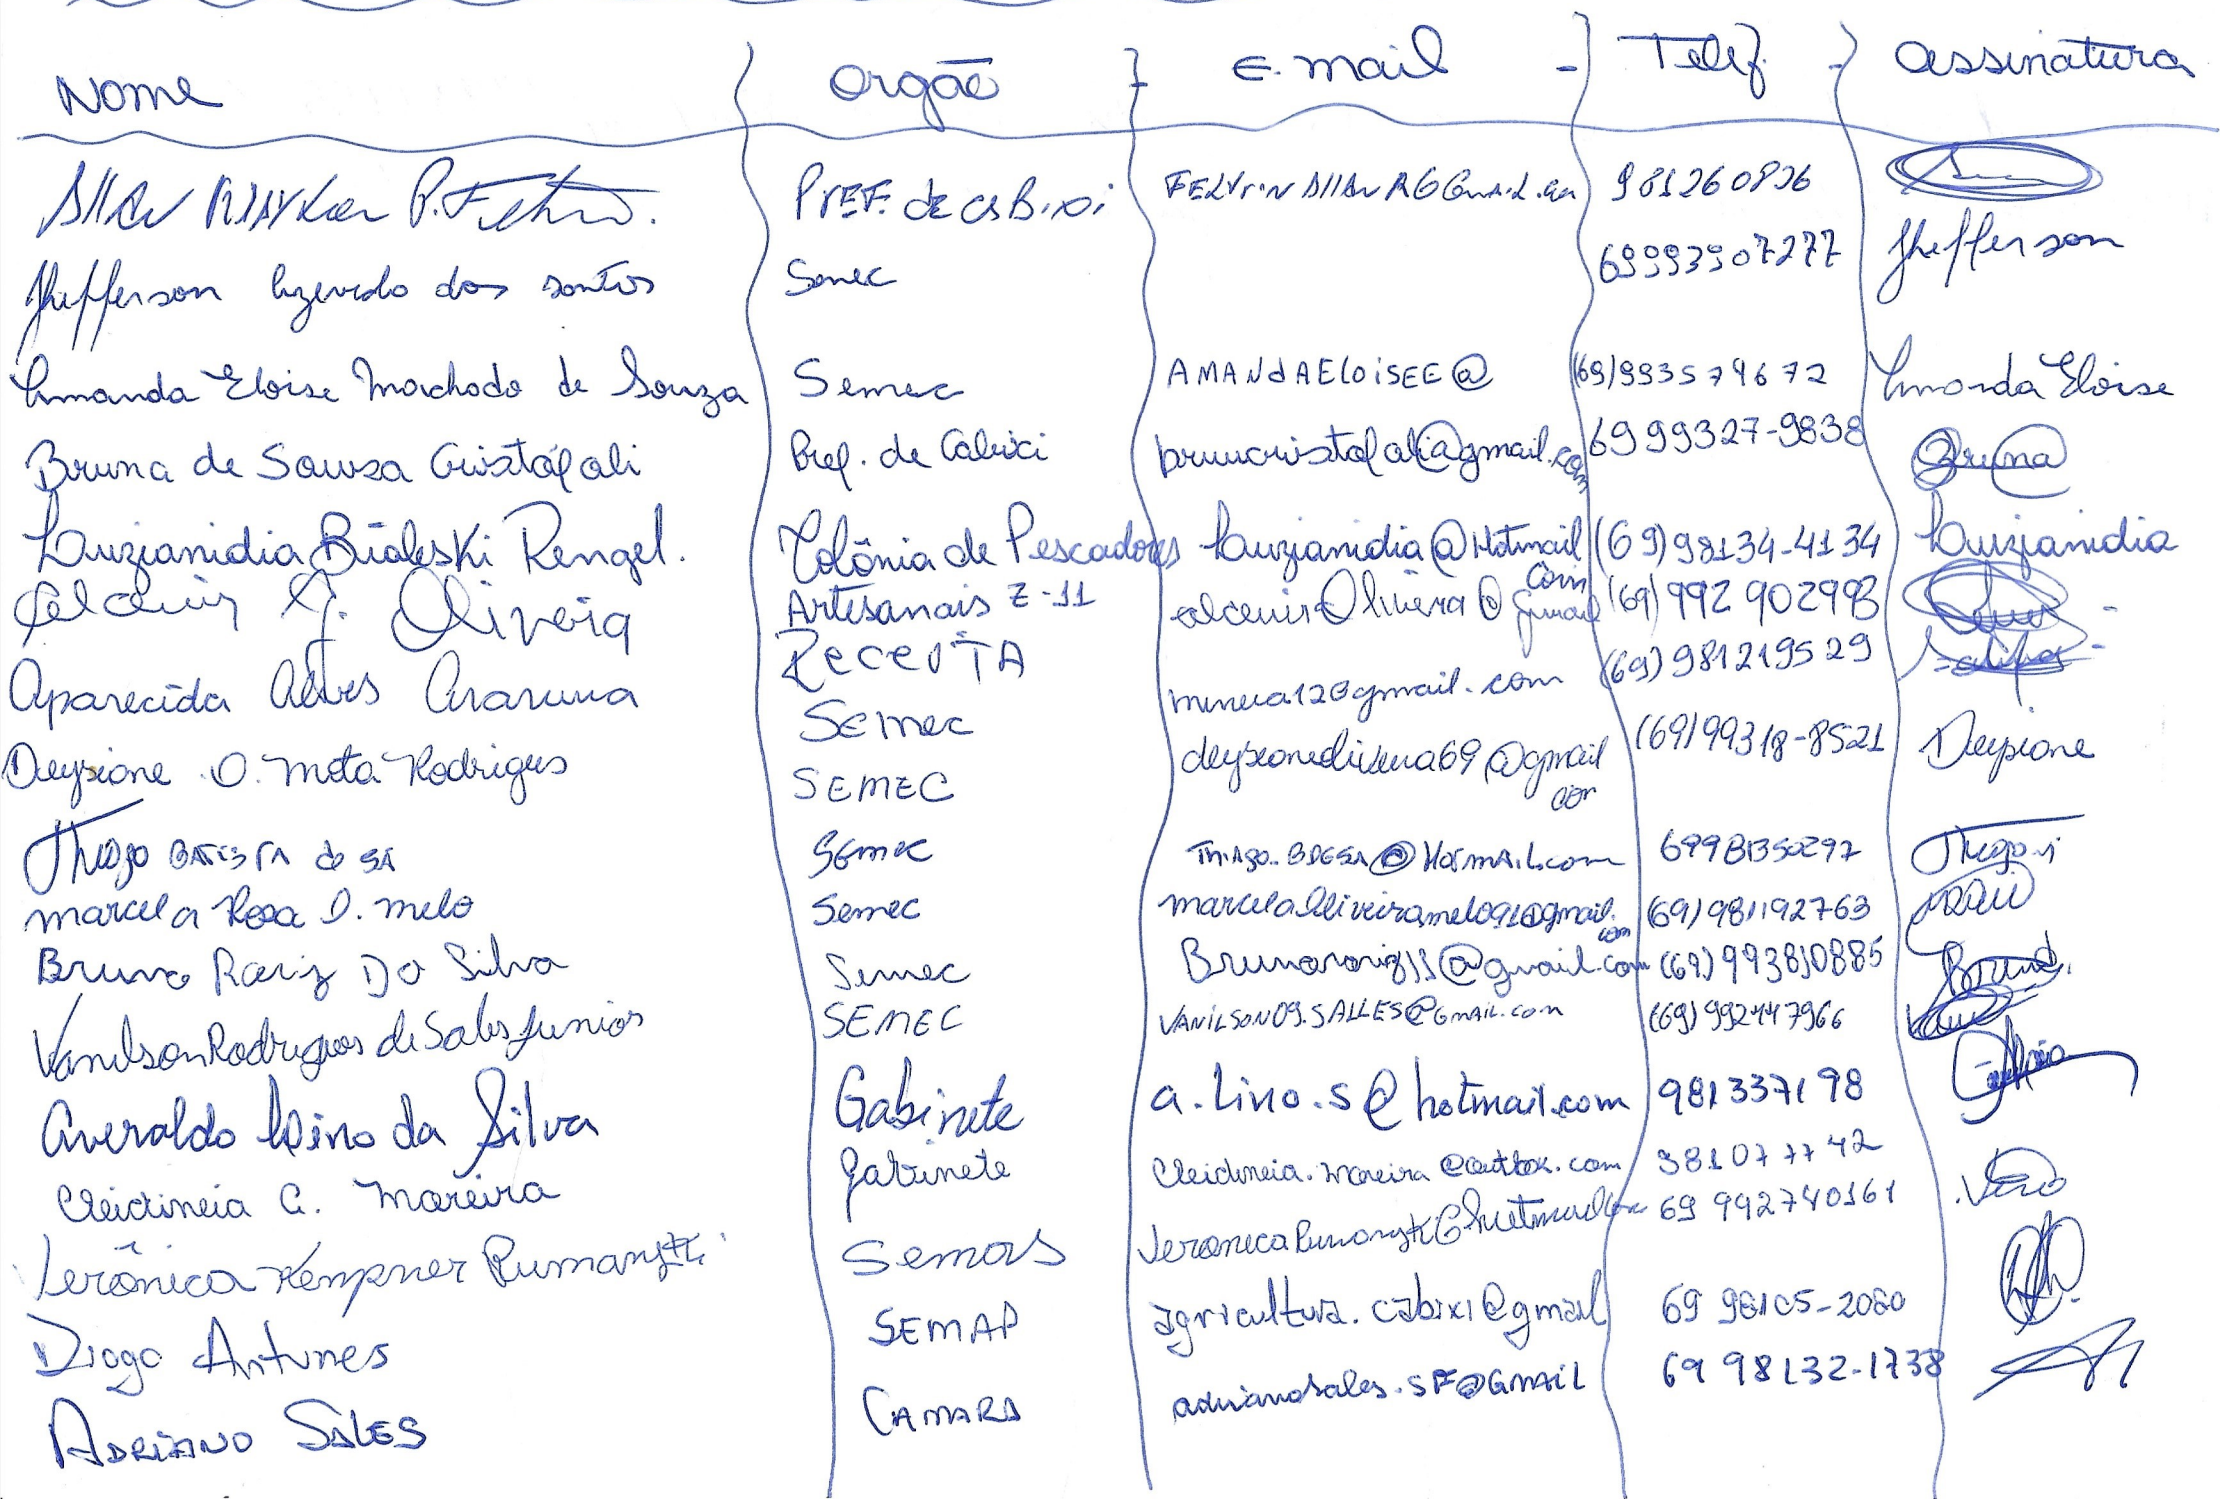 Nome orgão E-mail Telef assinatura
Pref. de cabixi 981260836
Jhefferson Azevedo dos santos Semec 69993907277 Jhefferson
Amanda Eloise Machado de Souza Semec AMANdAELOiSEE@ (69)993579672 Amanda Eloise
Bruna de Souza Cristófali Pref. de Cabixi brunacristofali@gmail.com 69 99327-9838 Bruna
Luzianidia Bialeski Rengel. Colônia de Pescadores Artesanais Z-11 Luzianidia@Hotmail com (69)98134-4134 Luzianidia
Oliveira ReceiTA alcenirOliveira@gmail (69) 992902998
Aparecida Alves Araruna Semec (69) 981219529
Deysione O. Mota Rodrigues SEMEC (69)99318-8521 Deysione
Thiago BATISTA de SÁ Semec 69981350297 Thiago
marcela Rosa O. melo Semec marcelaOliveiramelo91@gmail.com (69) 981192763
Bruno Roriz Da Silva Semec (69) 993810885 Bruno
Vanilson Rodrigues de Sales Junior SEMEC VANiLSON09.SALLES@GMAiL.com (69) 992447966
Averaldo Lino da Silva Gabinete a.lino.s@hotmail.com 981337198
Cleidineia A. Moreira Gabinete Cleidineia.moreira@outlook.com 981077742
Verônica Kempner Rumanski Semas 69 992740161
Diogo Antunes SEMAP agricultura.cabixi@gmail 69 98105-2080
ADRiANO SALES CAMARA adrianosales.SF@GMAiL 69 98132-1738